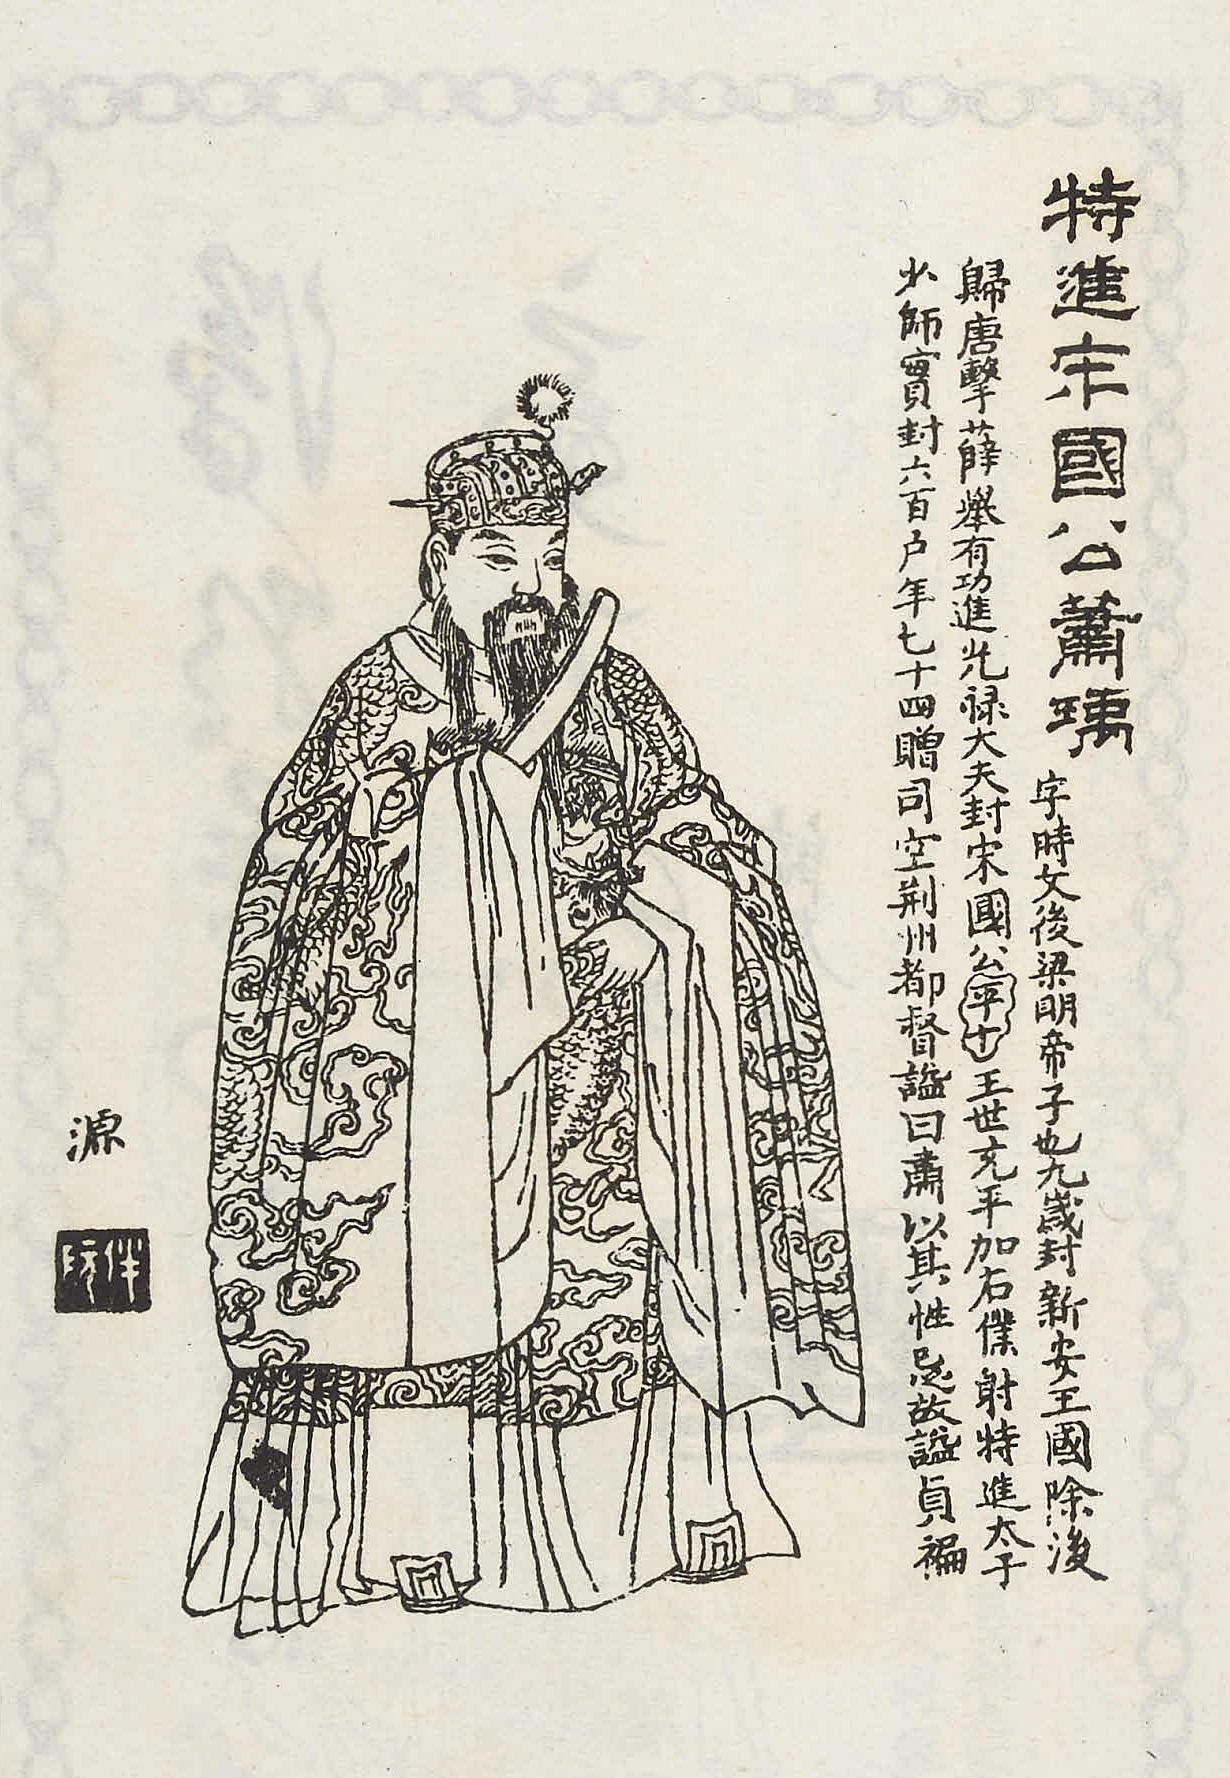 特進宋國公蕭瑀
字時文後梁明帝子也九歲封新安王國除後
歸唐擊薛舉有功進光禄大夫封宋國公平十王世充平加右僕射特進太子
少師實封六百户年七十四贈司空荆州都督謚曰肅以其性忌故謚貞褊
源